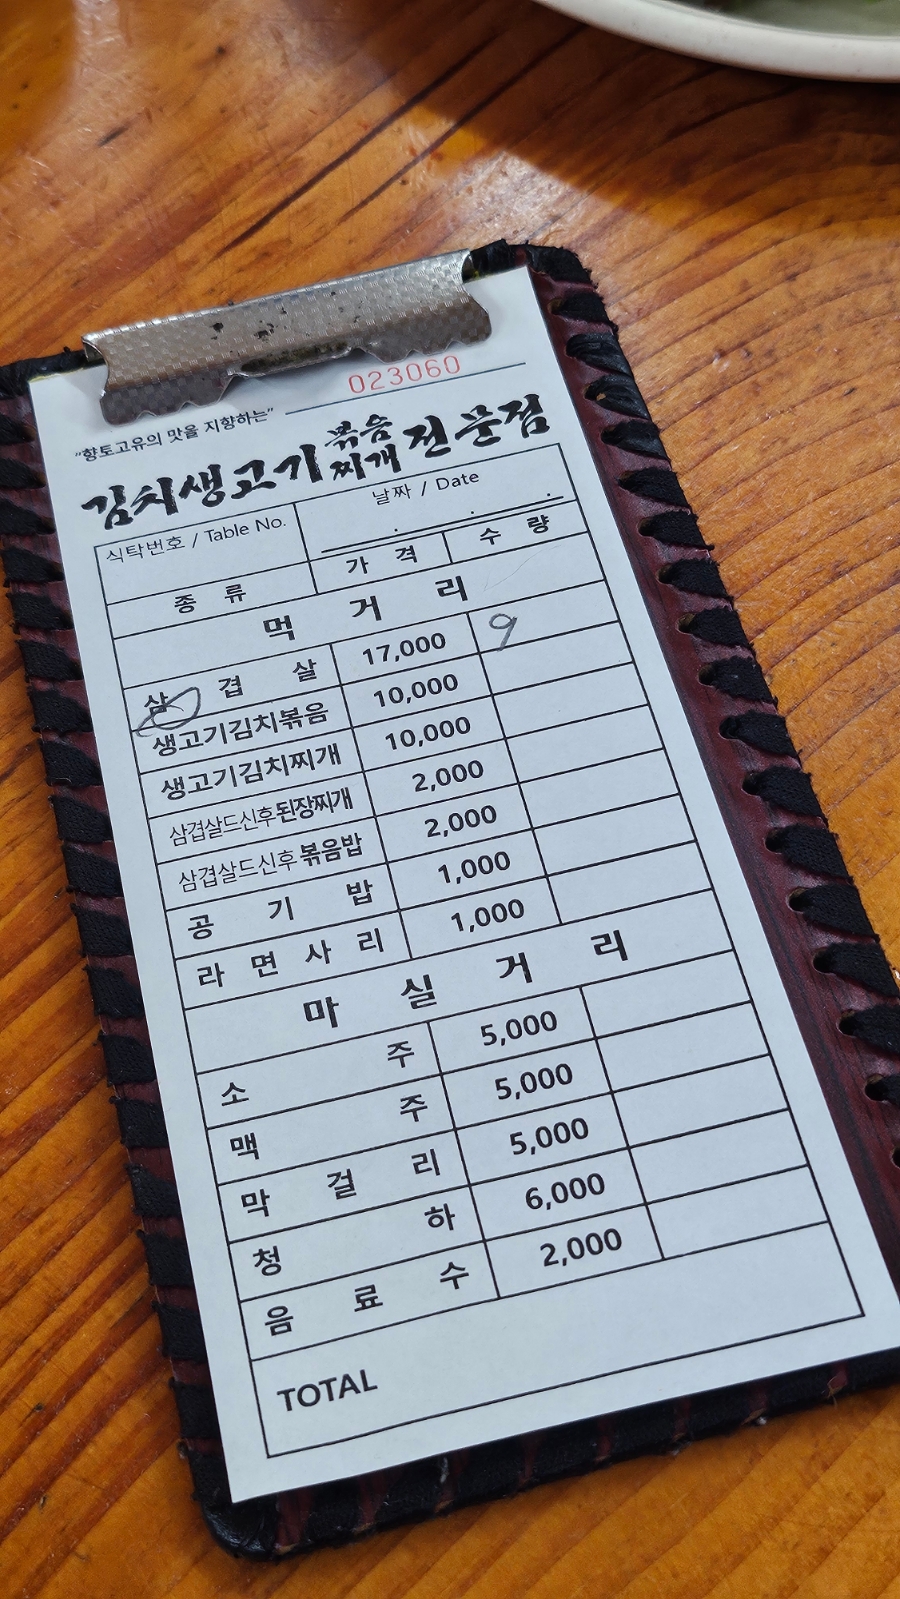 023060
"향토고유의 맛을 지향하는"
김치생고기 볶음 찌개 전문점
식탁번호 / Table No. 날짜 / Date
종류 가격 수량
먹거리
삼겹살 17,000 9
생고기김치볶음 10,000
생고기김치찌개 10,000
삼겹살드신후된장찌개 2,000
삼겹살드신후볶음밥 2,000
공기밥 1,000
라면사리 1,000
마실거리
소주 5,000
맥주 5,000
막걸리 5,000
청하 6,000
음료수 2,000
TOTAL